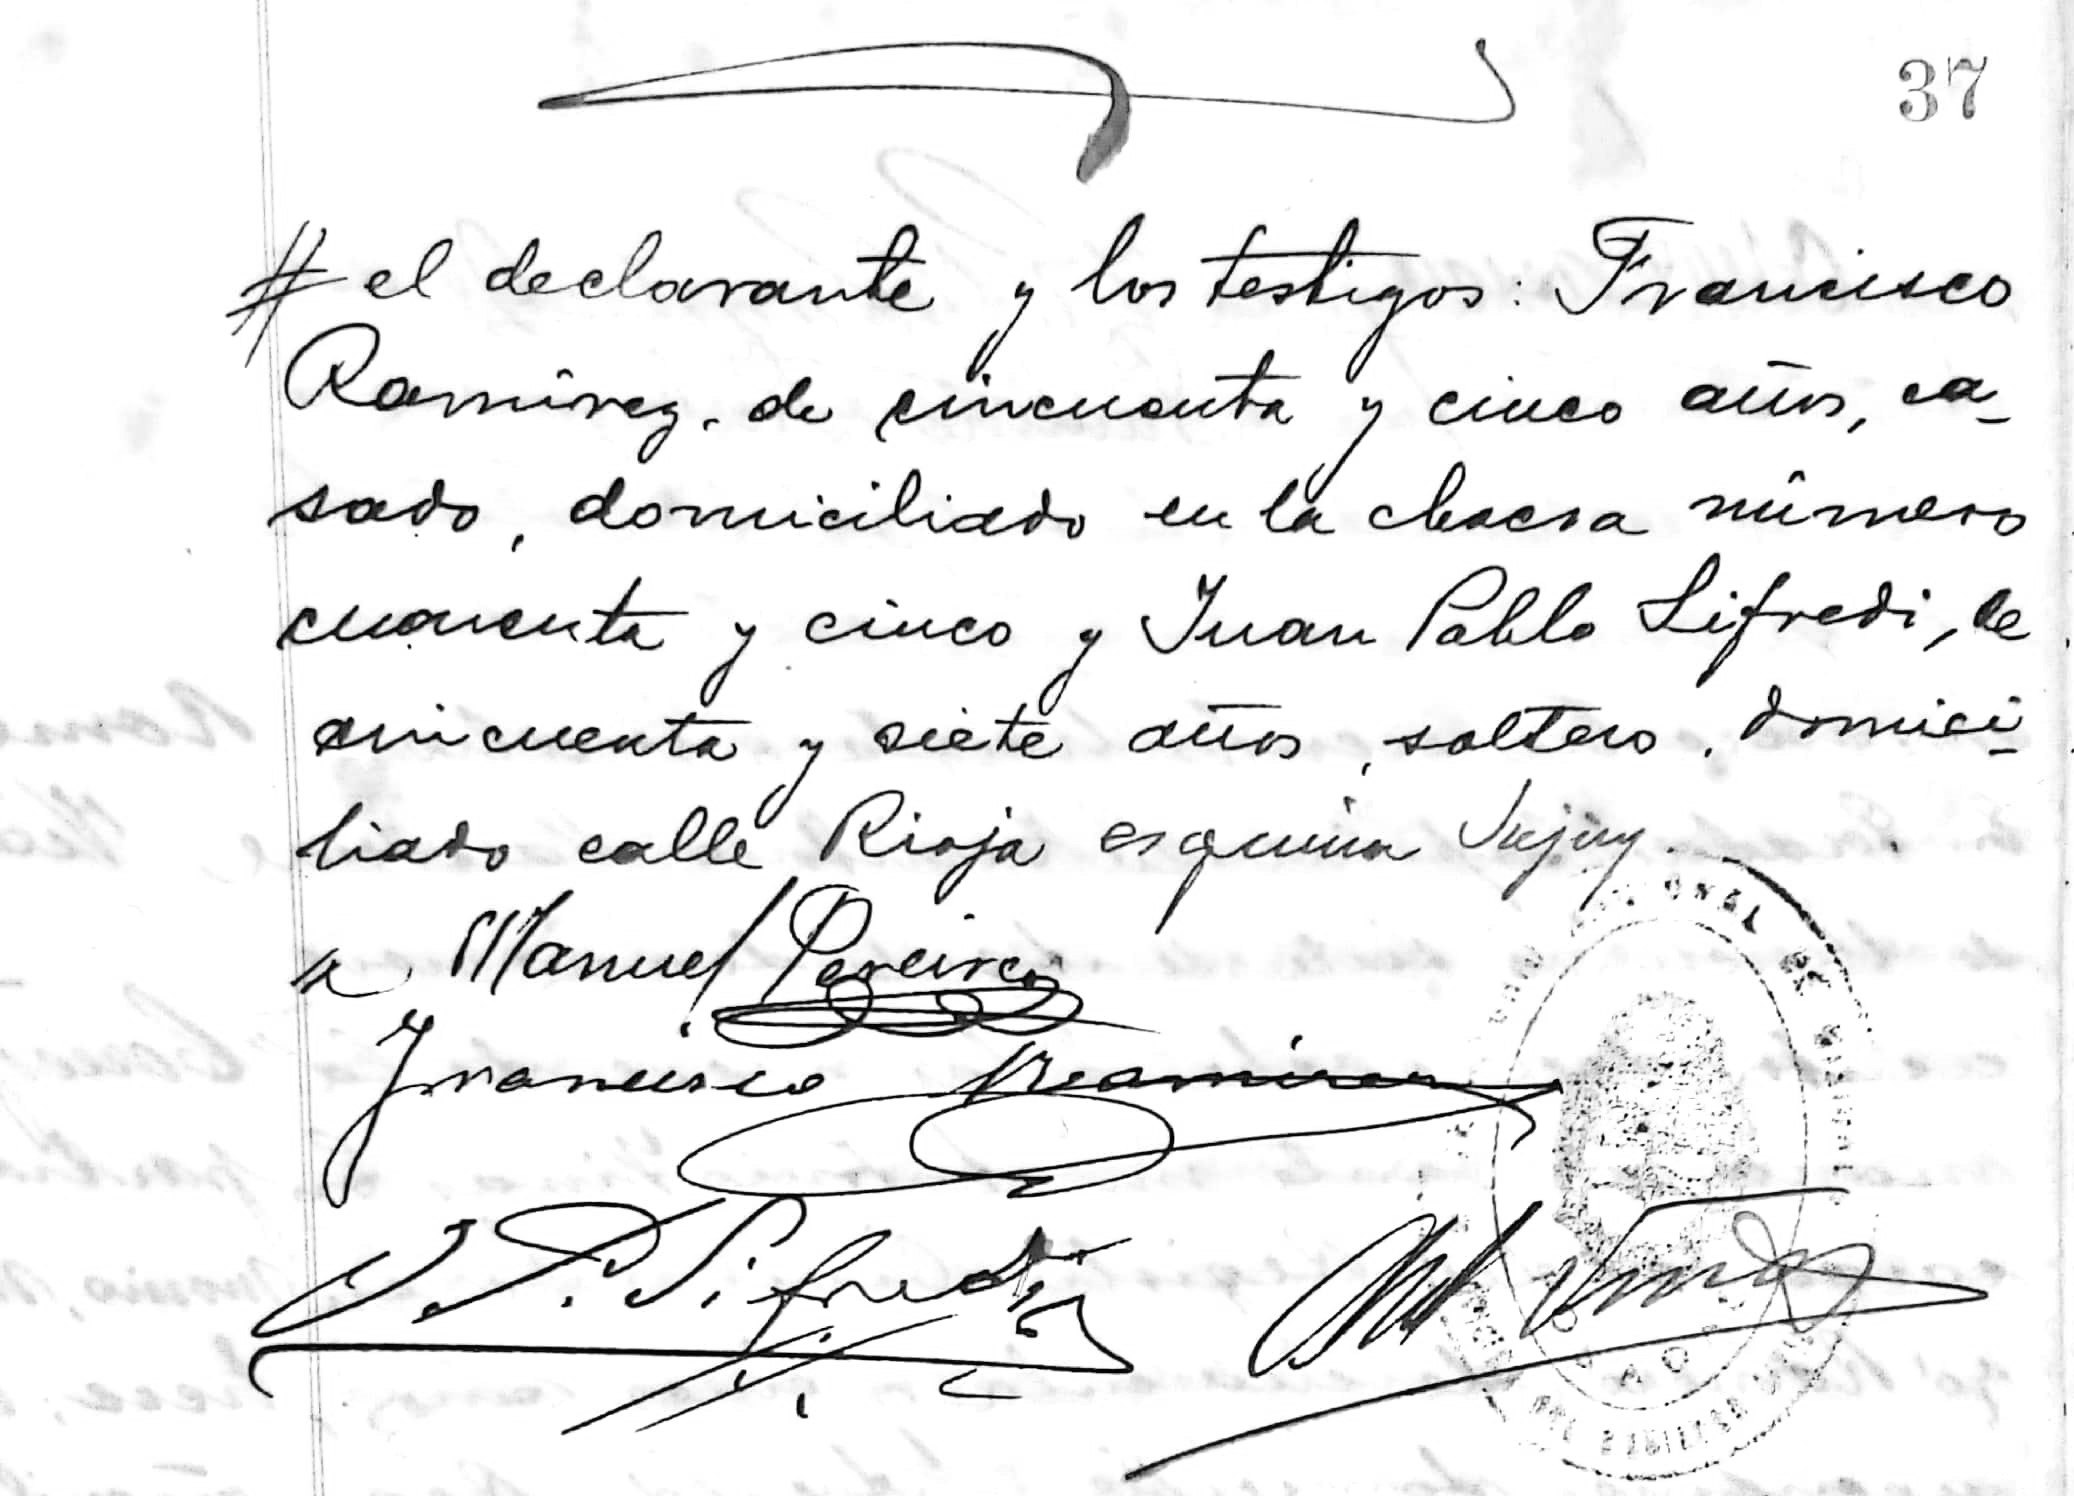 37
# el declarante y los testigos: Francisco
Ramirez, de cincuenta y cinco años, ca-
sado, domiciliado en la chacra número
cuarenta y cinco y Juan Pablo Lifredi, de
cincuenta y siete años, soltero, domici-
liado calle Rioja esquina Jujuy
Manuel Pereira
Francisco Ramirez
J. P. Lifredi